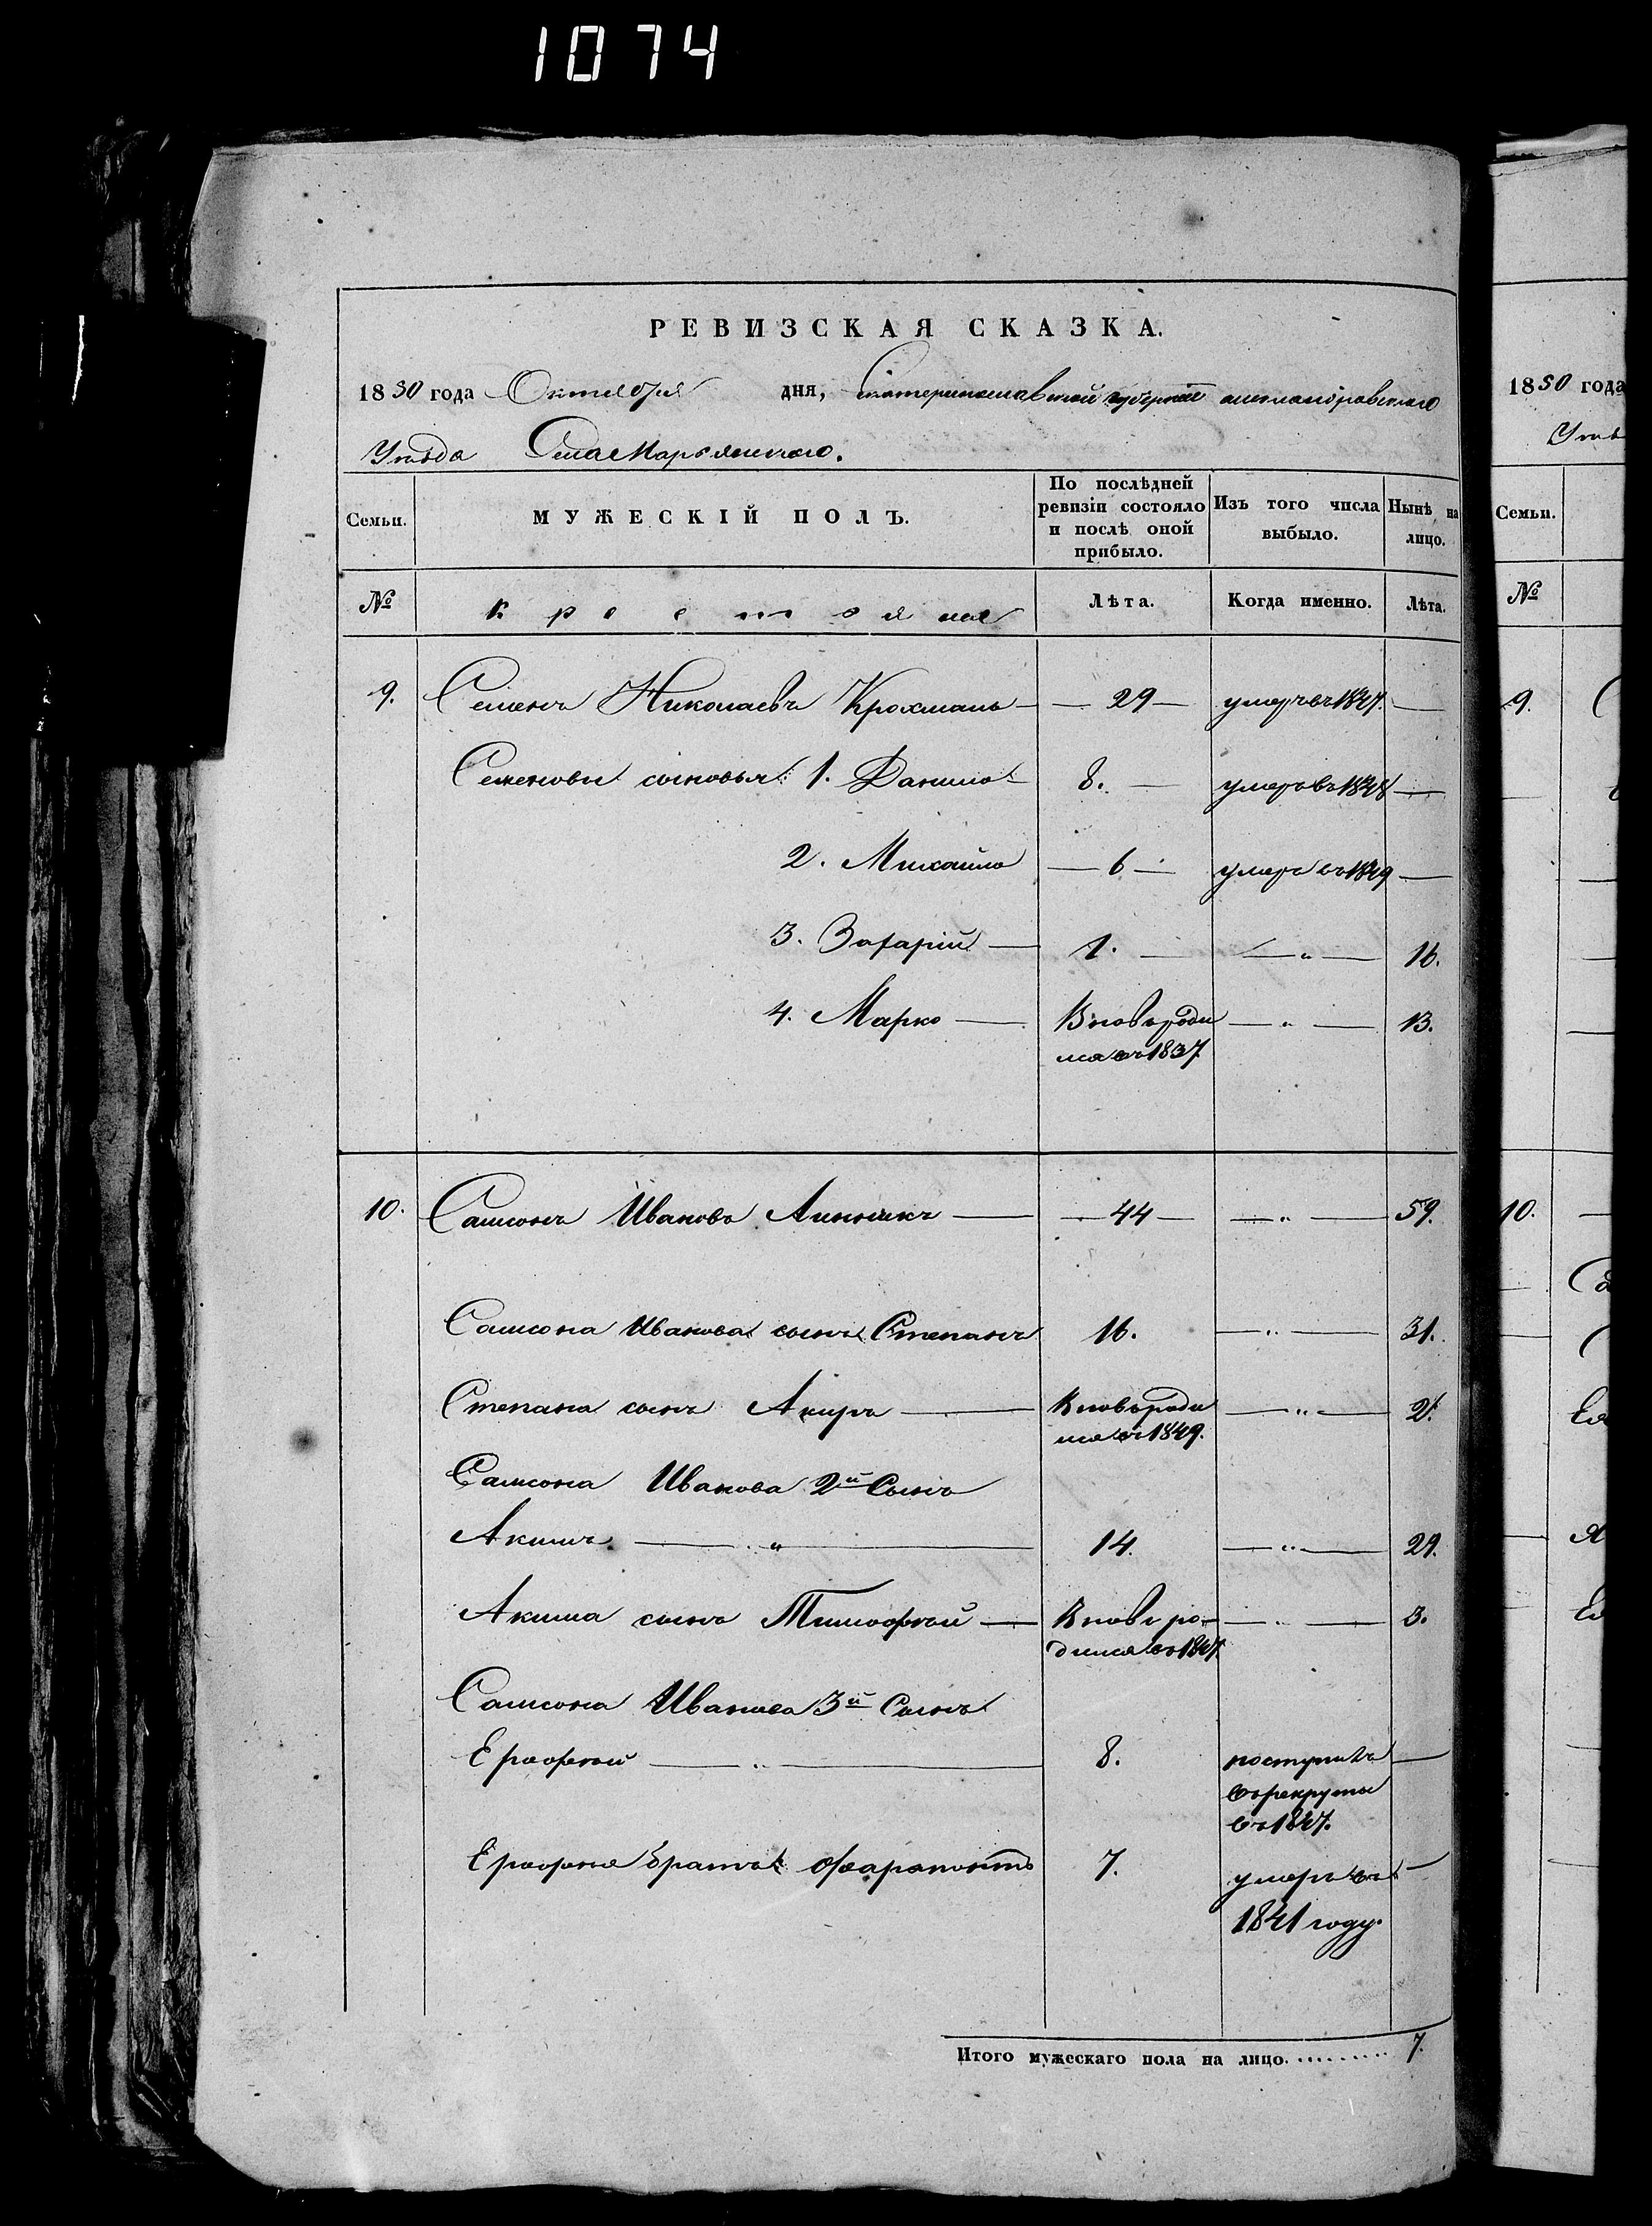 1074
РЕВИЗСКАЯ СКАЗКА.
1850 года Октября дня, Екатеринославской губернии александровскаго
Уѣзда Села Марьянскаго.
Семьи. МУЖЕСКІЙ ПОЛЪ. По послѣдней ревизіи состояло и послѣ оной прибыло. Изъ того числа выбыло. Нынѣ на лицо.
№ крестьяне Лѣта. Когда именно. Лѣта.
9. Семенъ Николаевъ Крохмаль 29 умеръ въ 1847.
Семеновы сыновья: 1. Данило 8. умеръ въ 1848
2. Михайло 6 умеръ въ 1849
3. Захарій 1. " 16.
4. Марко Вновь роди " 13.
лся въ 1837
10. Самсонъ Ивановъ Линникъ 44 " 59.
Самсона Иванова сынъ Степанъ 16. " 31.
Степана сынъ Вновь роди " 2.
лся въ 1849.
Самсона Иванова 2й Сынъ
Акимъ " 14. " 29.
Акима сынъ Тимофѣй Вновь ро- " 3.
дился въ 1847.
Самсона Иванова 3й Сынъ
Ерофѣй " 8. поступилъ
въ рекруты
въ 1847.
Ерофея братъ 7. умеръ въ
1841 году.
Итого мужескаго пола на лицо. 7.
1850 года
Уѣз
Семьи.
№
9.
10.